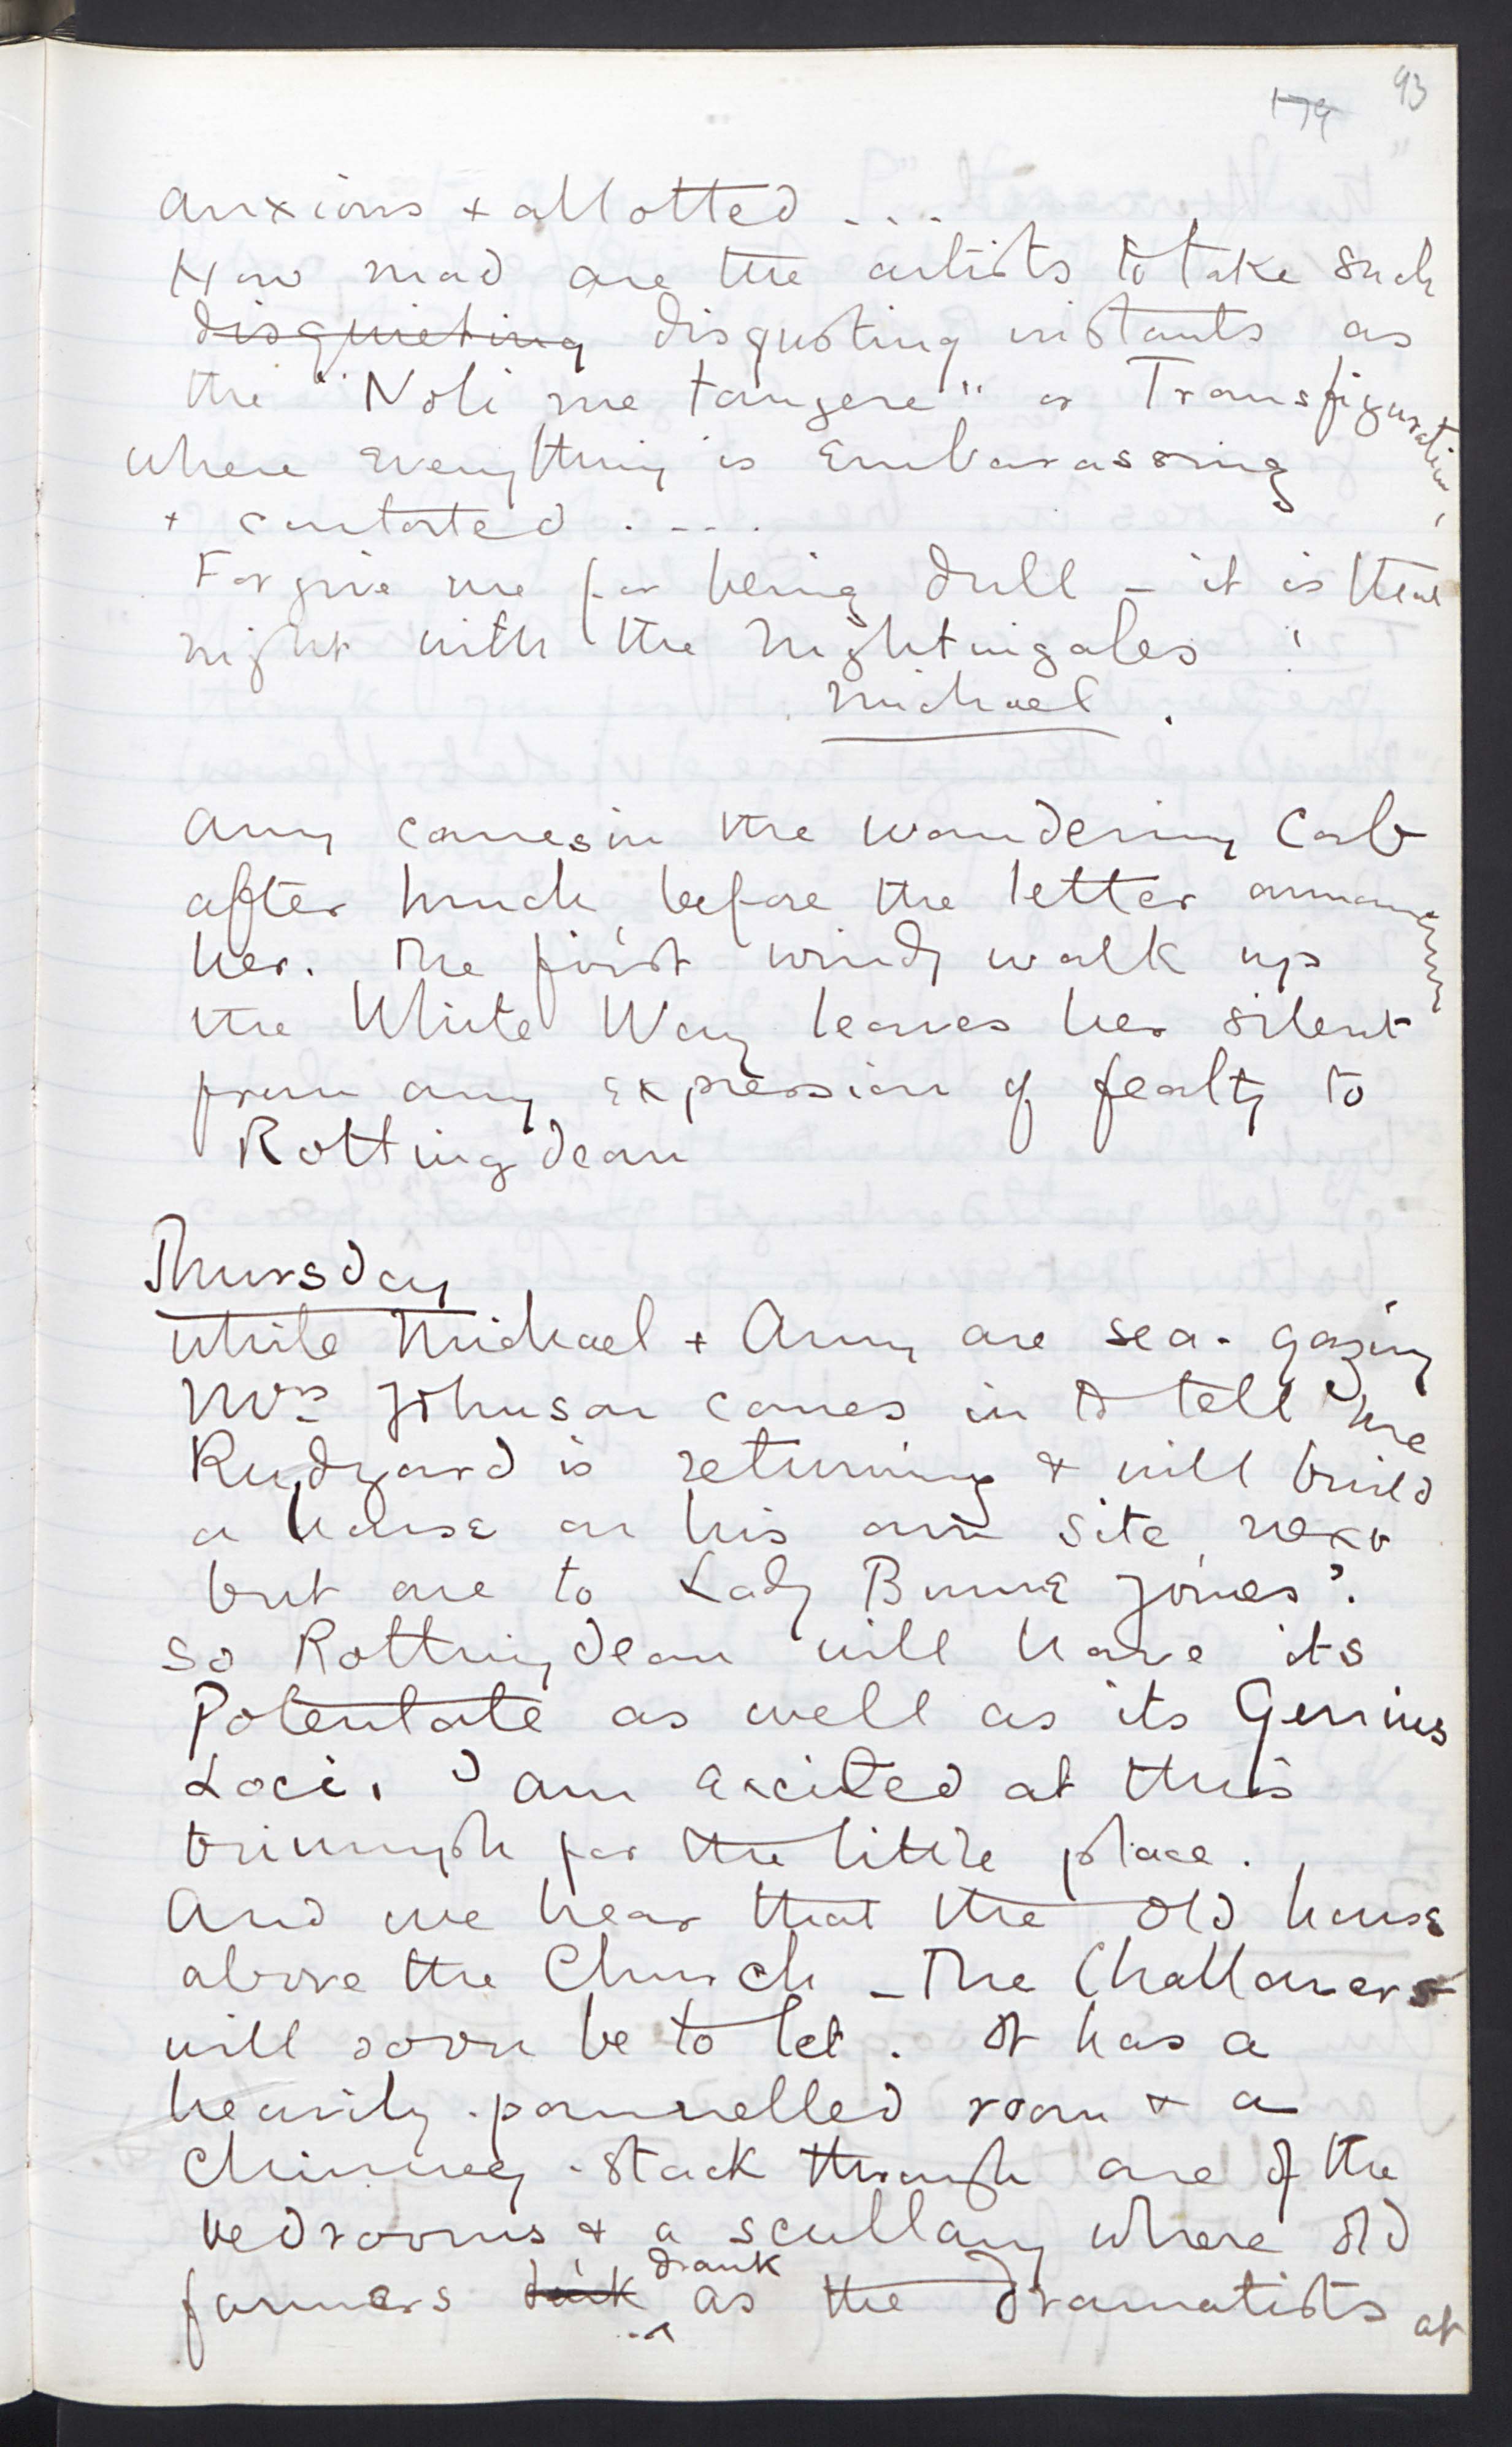 93
179
anxious + allotted ....
How mad are the artists to take such
disquieting disgusting instants as
the "Noli me tangere" or Transfiguration,
where everything is embarassing
+ contorted ....
Forgive me for being dull – it is that
night with the nightingales!
Michael.
Amy comes in the wandering Cab
after lunch before the letter announcing
her. The first windy walk up
the White Way leaves her silent
from any expression of fealty to
Rottingdean
Thursday
While Michael + Amy are sea-gazing
Mrs Johnson comes in to tell me
Rudyard is returning + will build
a house on his own site, next
but one to Lady Burne Jones'.
So Rottingdean will have its
Potentate as well as its Genius
Loci. I am excited at this
triumph for the little place.
And we hear that the old house
above the Church – The Challoners
will soon be to let. It has a
heavily-pannelled room + a
Chimney-stack through one of the
bedrooms + a scullary where old
farmers drink drank as the dramatists at